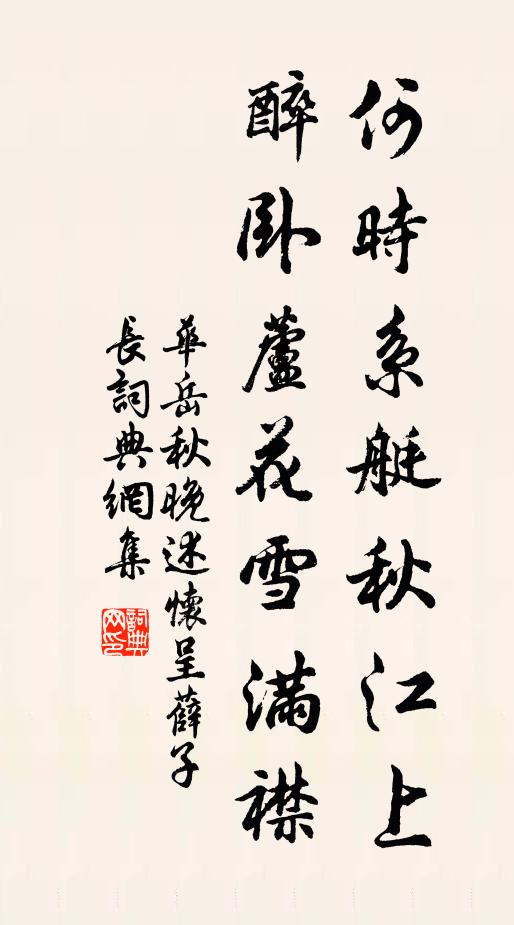 何時系艇秋江上
醉卧蘆花雪滿襟
華岳秋晚述懷呈薛子
長詞典網集
詞典網印